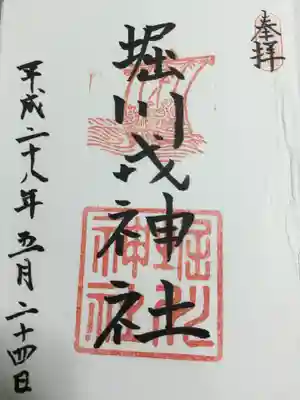 奉拝
堀川戎神社
平成二十八年五月二十四日
堀川神社